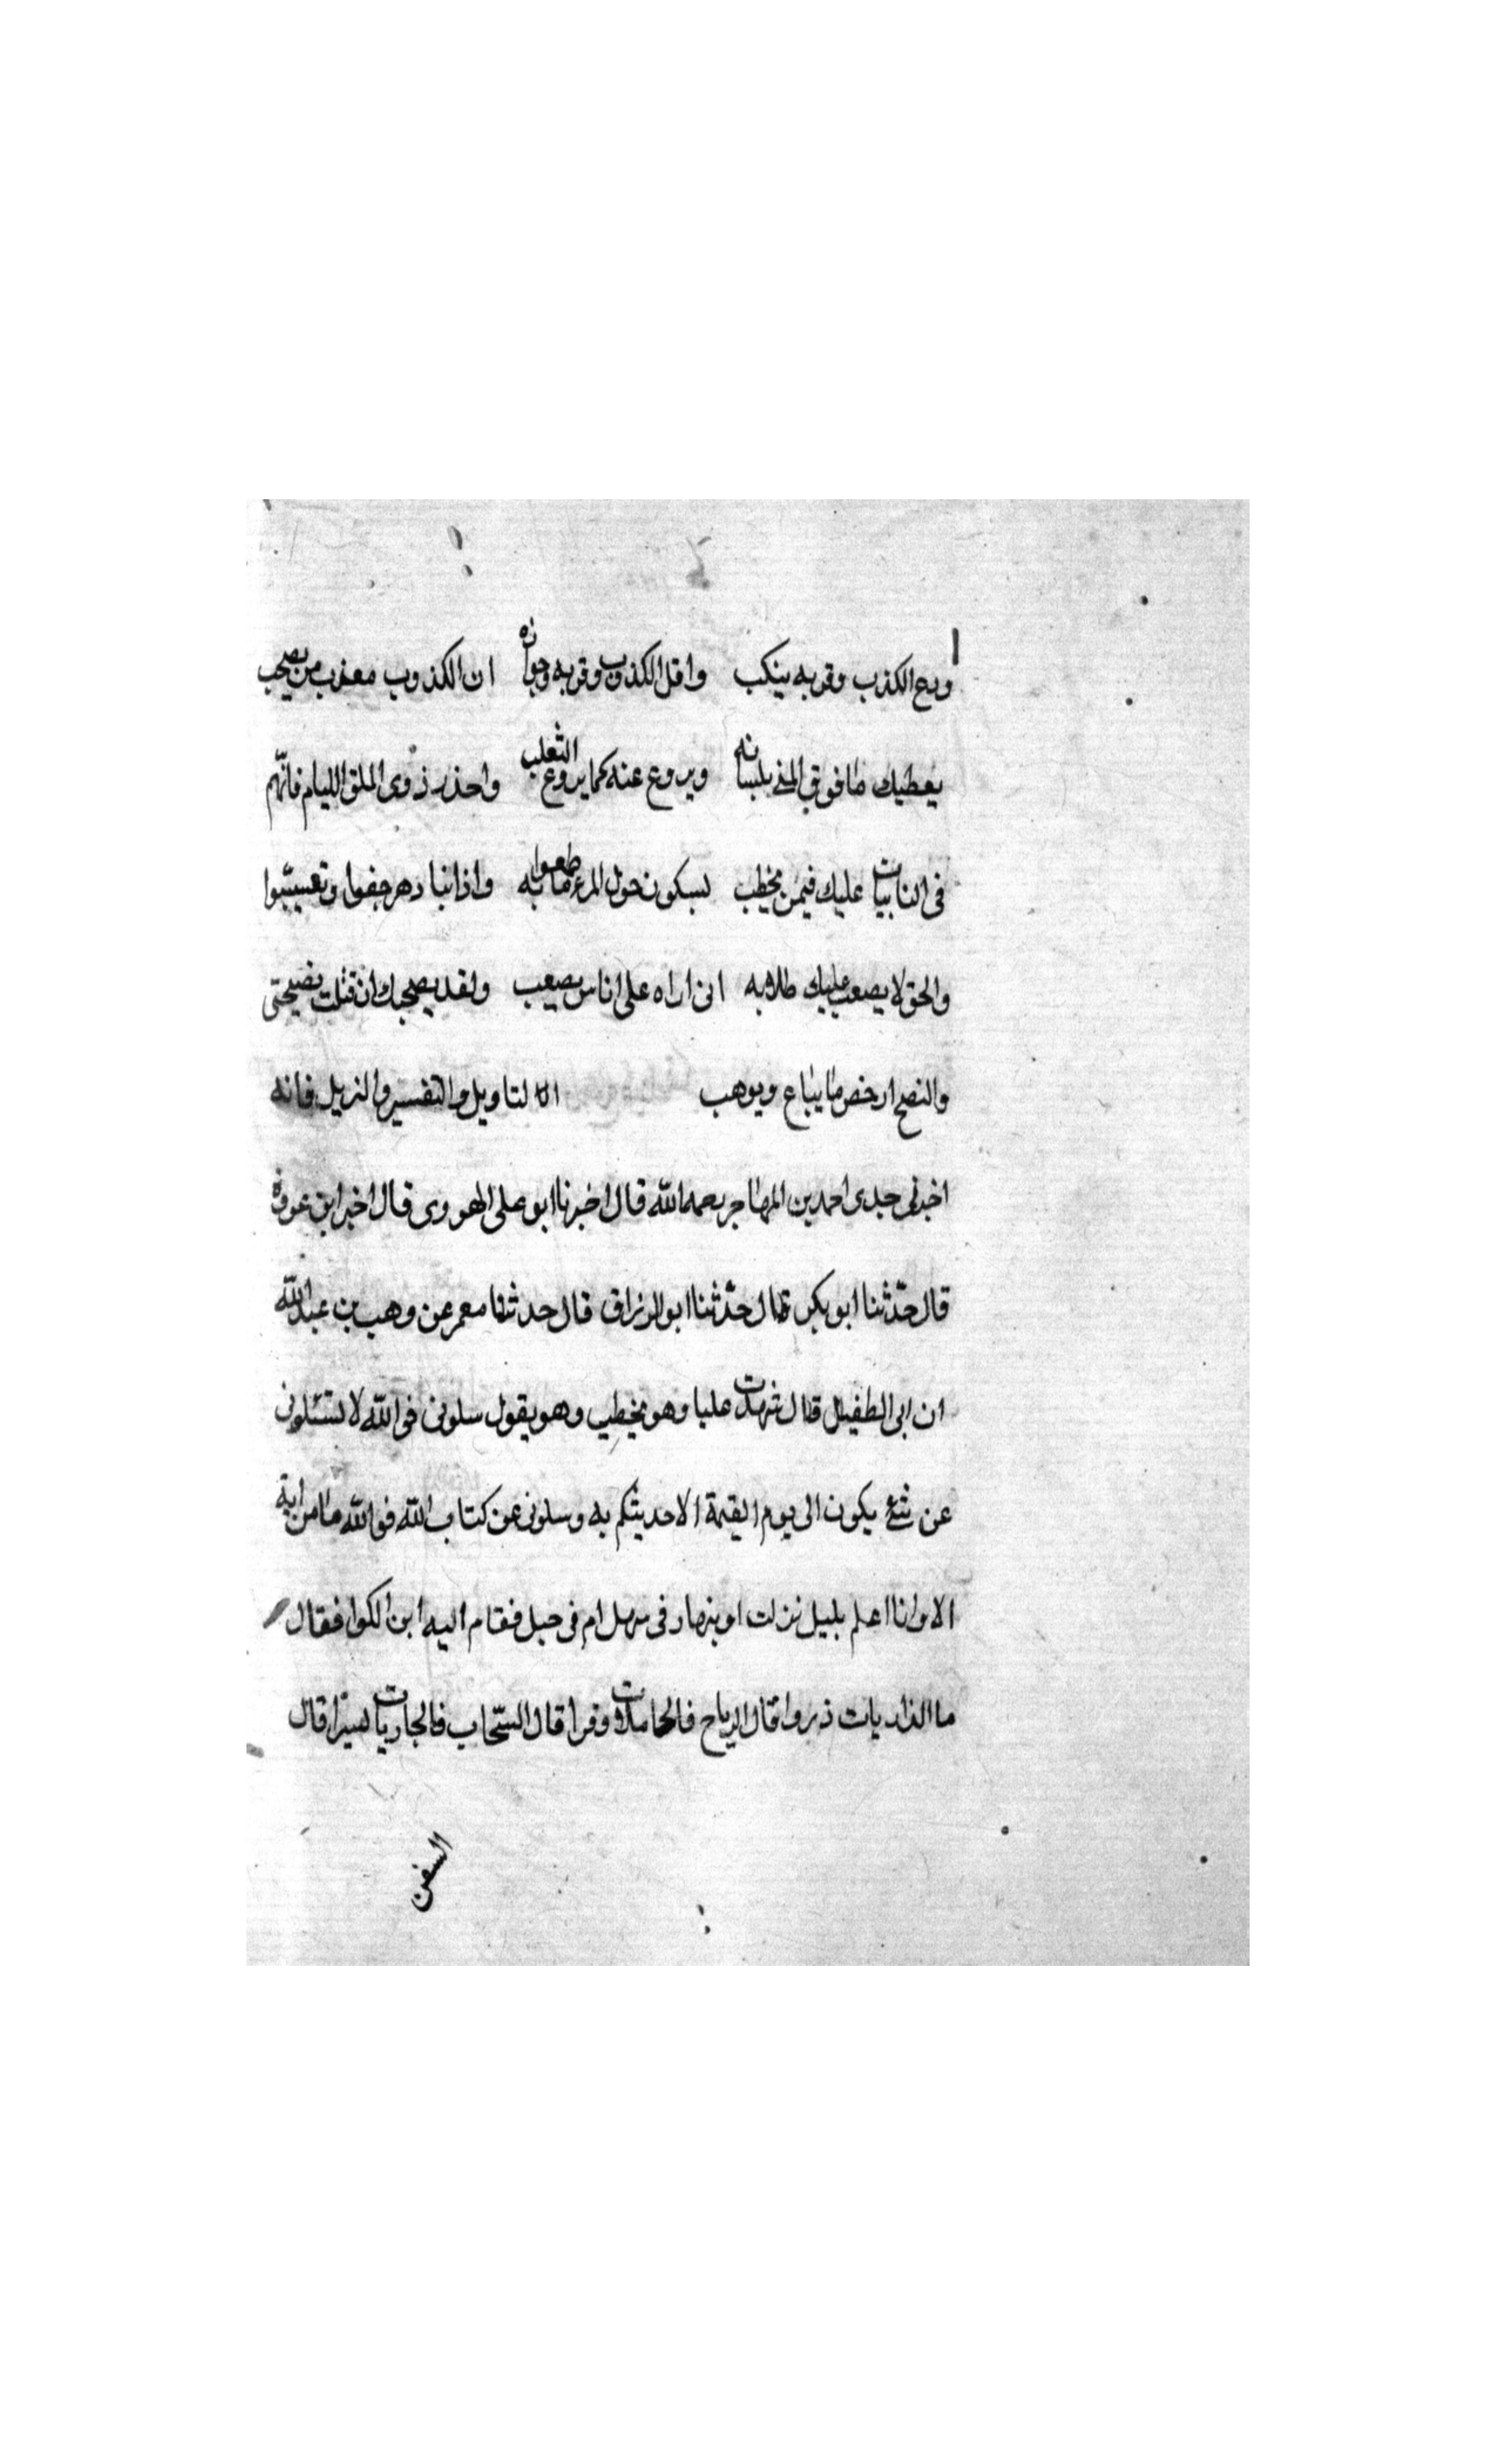 ودع الكذب وقربه ينكب واقل الكذوب وقربه وجواره ان الكذوب معذب من يصحب
يعطيك ما فوق المنى بلسانه ويروع عنه كما يروع الثعلب واحذر ذوى الملق الليام فانهم
فى النايبات عليك فيمن يخطب يسكون حول المرء ما طمعوا به واذا نبا دهر جفوا وتعسبوا
والحق لا يصعب عليك طلابه انى اراه على اناس يصعب ولقد يصحبك ان قبلت نصيحتى
والنصح ارخص ما يباع ويوهب اما لتاويل والتفسير والنزيل فانه
اخبرنى جدى احمد بن المهاجر رحمه الله قال اخبرنا ابو على الهروى قال اخبر ابن عوف
قال حدّثنا ابو بكر قال حدّثنا ابو الرزاق قال حدثنا معمر عن وهب بن عبد الله
ان ابى الطفيل قال شهدت عليا وهو يخطب وهو يقول سلونى فو الله لا تسئلونى
عن شئ يكون الى يوم القيمة الا حديثكم به وسلونى عن كتاب الله فو الله ما من اية
الا وانا اعلم بليل نزلت او بنهار فى سهل ام فى جبل فقام اليه ابن الكوا فقال
ما الذاريات ذروا قال الرياح فالحاملات وقرا قال السّحاب فالجاريات يسرا قال
السفن